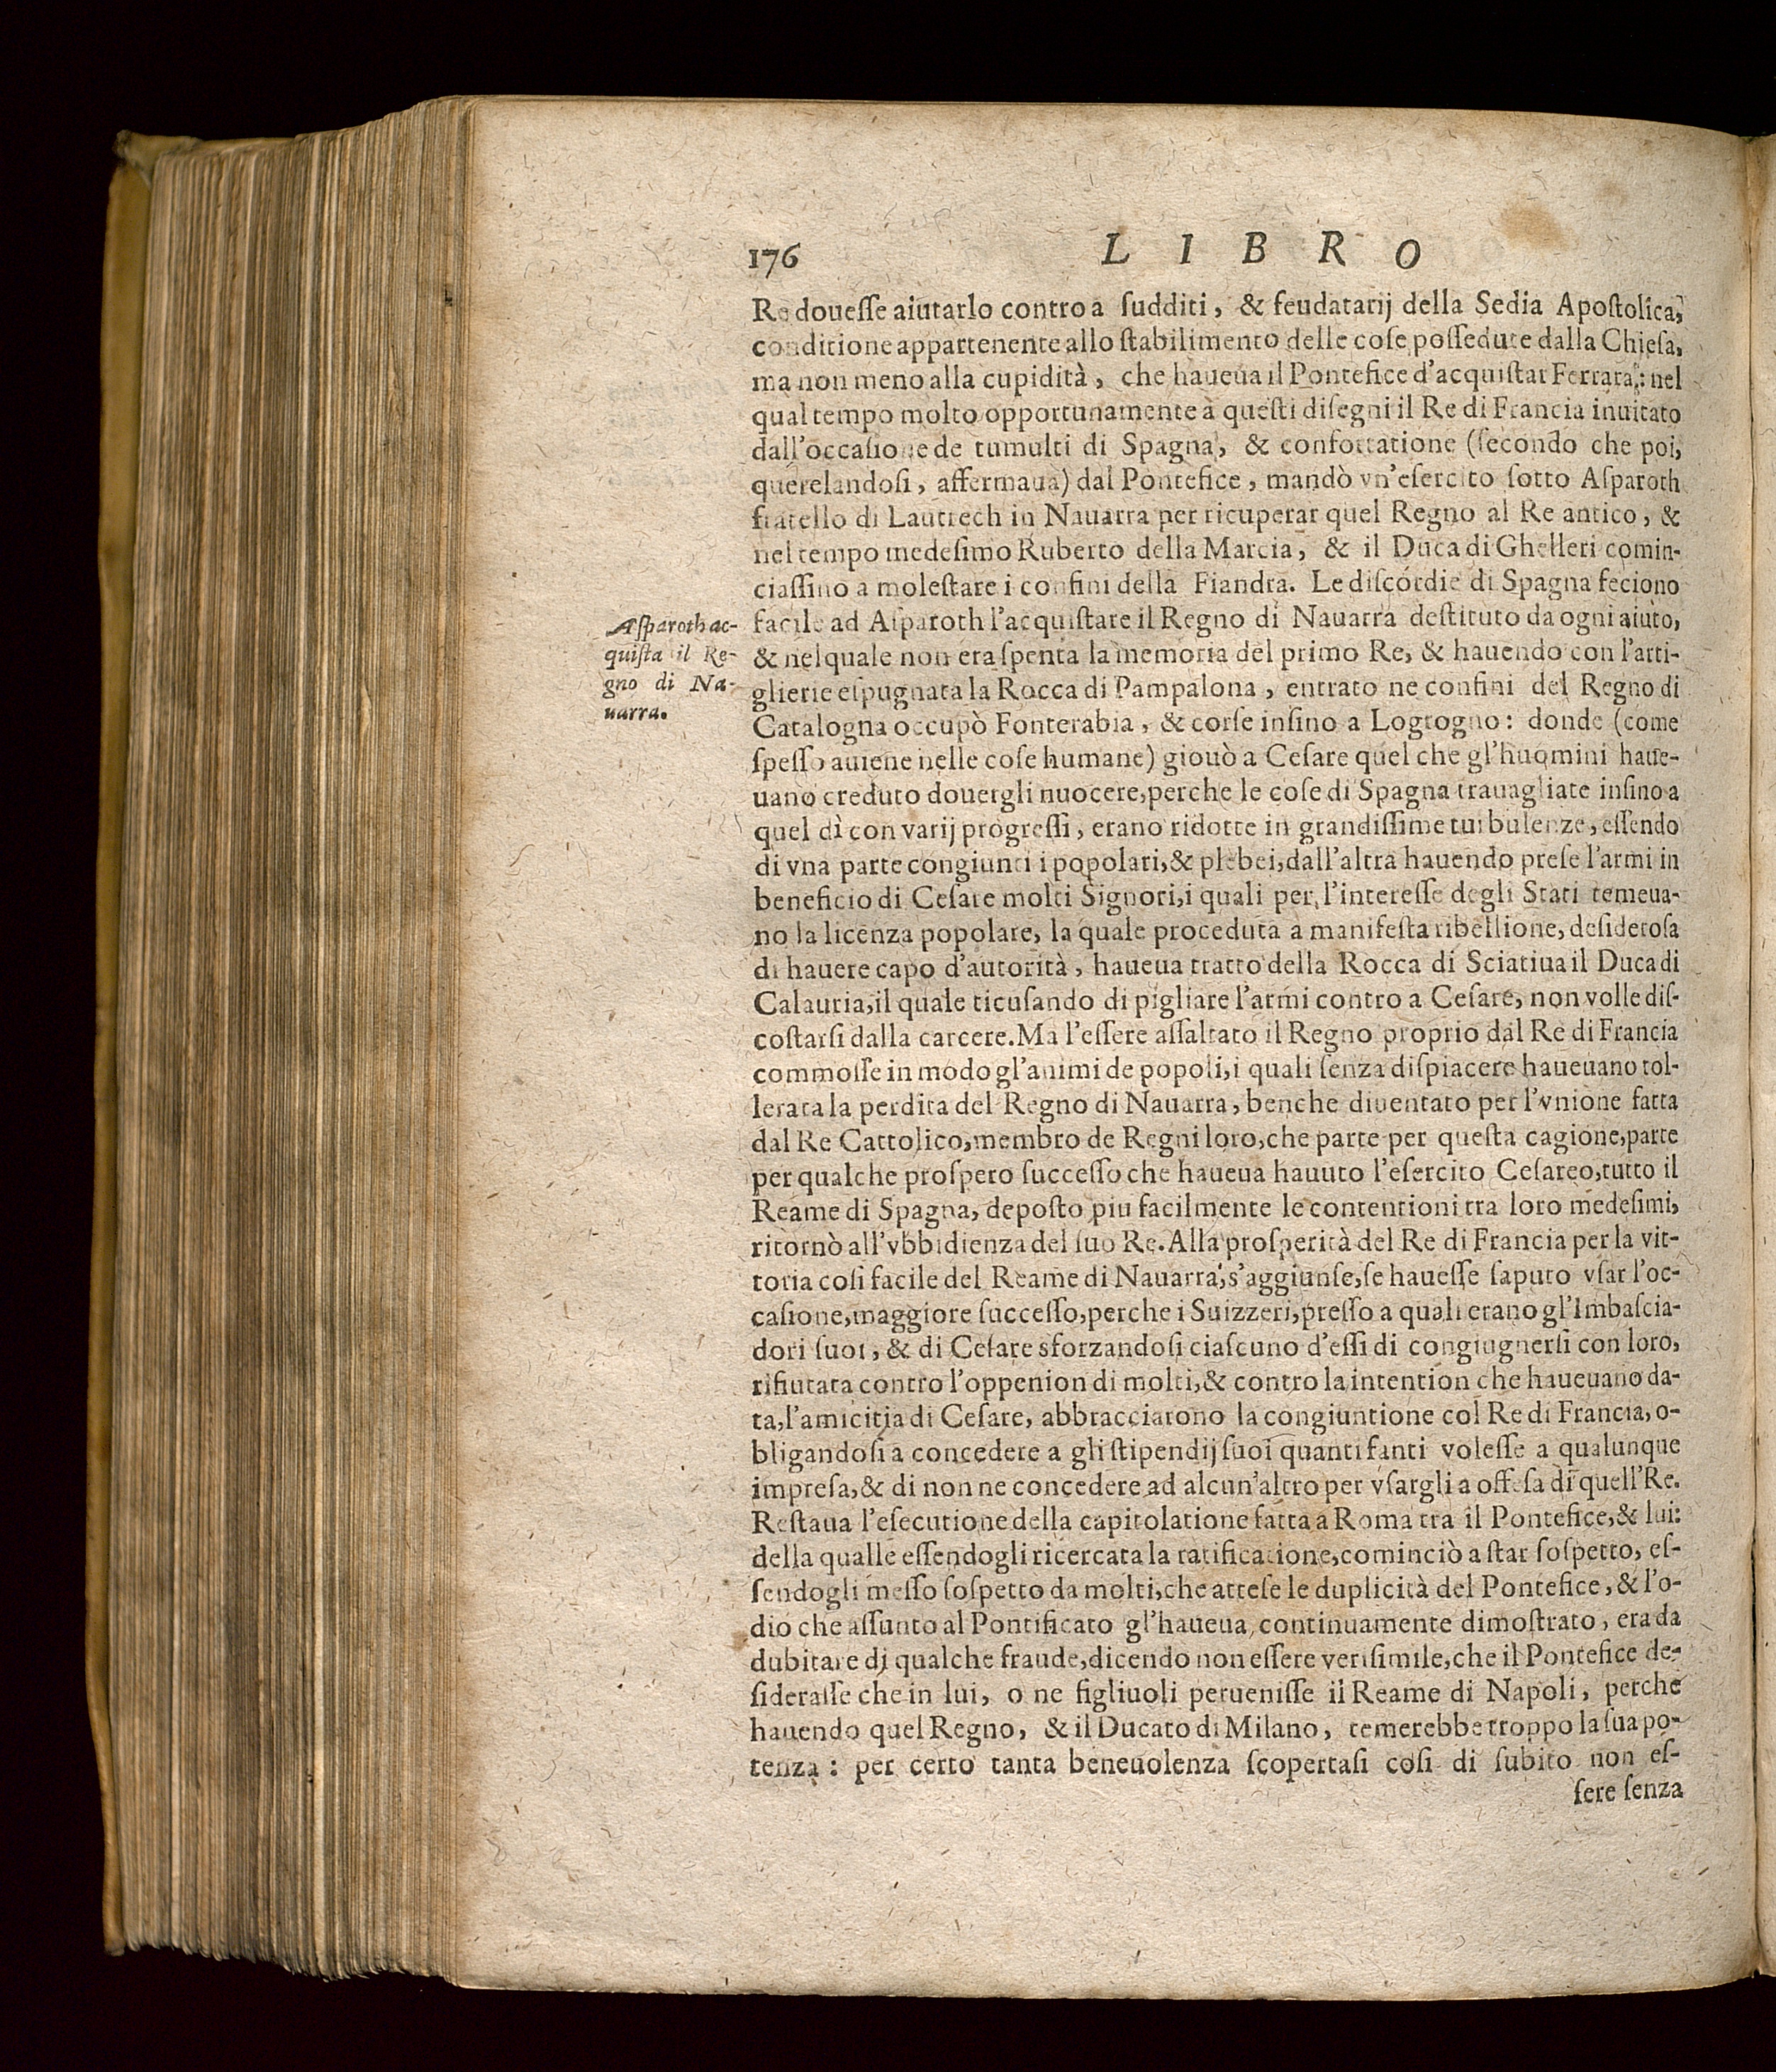 176 LIBRO
Re douesse aiutarlo contro a sudditi, & feudatarij della Sedia Apostolica,
conditione appartenente allo stabilimento delle cose possedute dalla Chiesa,
ma non meno alla cupidità, che haueua il Pontefice d'acquistar Ferrara: nel
qual tempo molto opportunamente a questi disegni il Re di Francia inuitato
dall'occasione de tumulti di Spagna, & confortatione (secondo che poi,
querelandosi, affermaua) dal Pontefice, mandò vn'esercito sotto Asparoth
fratello di Lautrech in Nauarra per ricuperar quel Regno al Re antico, &
nel tempo medesimo Ruberto della Marcia, & il Duca di Ghelleri comin-
ciassino a molestare i confini della Fiandra. Le discordie di Spagna feciono
Asparoth ac-
quista il Re-
gno di Na-
uarra.
facile ad Asparoth l'acquistare il Regno di Nauarra destituto da ogni aiuto,
& nel quale non era spenta la memoria del primo Re, & hauendo con l'arti-
glierie espugnata la Rocca di Pampalona, entrato ne confini del Regno di
Catalogna occupò Fonterabia, & corse insino a Logrogno: donde (come
spesso auiene nelle cose humane) giouò a Cesare quel che gl'huomini haue-
uano creduto douergli nuocere, perche le cose di Spagna trauagliate insino a
quel dì con varij progressi, erano ridotte in grandissime turbulenze, essendo
di vna parte congiunti i popolari, & plebei, dall'altra hauendo prese l'armi in
beneficio di Cesare molti Signori, i quali per l'interesse degli Stati temeua-
no la licenza popolare, la quale proceduta a manifesta ribellione, desiderosa
di hauere capo d'autorità, haueua tratto della Rocca di Sciatiua il Duca di
Calauria, il quale ricusando di pigliare l'armi contro a Cesare, non volle dis-
costarsi dalla carcere. Ma l'essere assaltato il Regno proprio dal Re di Francia
commosse in modo gl'animi de popoli, i quali senza dispiacere haueuano tol-
lerata la perdita del Regno di Nauarra, benche diuentato per l'vnione fatta
dal Re Cattolico, membro de Regni loro, che parte per questa cagione, parte
per qualche prospero successo che haueua hauuto l'esercito Cesareo, tutto il
Reame di Spagna, deposto piu facilmente le contentioni tra loro medesimi,
ritornò all'vbbidienza del suo Re. Alla prosperità del Re di Francia per la vit-
toria cosi facile del Reame di Nauarra, s'aggiunse, se hauesse saputo vsar l'oc-
casione, maggiore successo, perche i Suizzeri, presso a quali erano gl'Imbascia-
dori suoi, & di Cesare sforzandosi ciascuno d'essi di congiugnersi con loro,
rifiutata contro l'oppenion di molti, & contro la intention che haueuano da-
ta, l'amicitia di Cesare, abbracciarono la congiuntione col Re di Francia, o-
bligandosi a concedere a gli stipendij suoi quanti fanti volesse a qualunque
impresa, & di non ne concedere ad alcun'altro per vsargli a offesa di quell'Re.
Restaua l'esecutione della capitolatione fatta a Roma tra il Pontefice, & lui:
della qualle essendogli ricercata la ratificatione, cominciò a star sospetto, es-
sendogli messo sospetto da molti, che attese le duplicità del Pontefice, & l'o-
dio che assunto al Pontificato gl'haueua continuamente dimostrato, era da
dubitare di qualche fraude, dicendo non essere verisimile, che il Pontefice de-
siderasse che in lui, o ne figliuoli peruenisse il Reame di Napoli, perche
hauendo quel Regno, & il Ducato di Milano, temerebbe troppo la sua po-
tenza: per certo tanta beneuolenza scopertasi cosi di subito non es-
sere senza